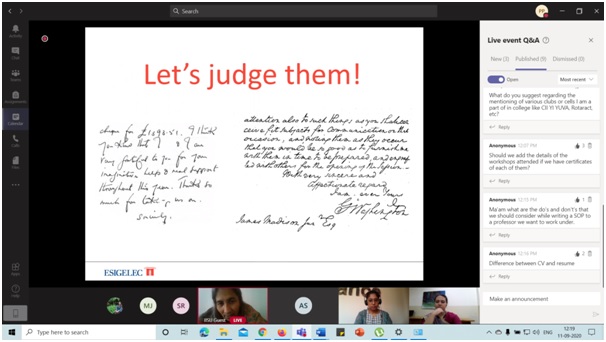 Search
FP
Live event Q&A
New (3) Published (9) Dismissed (0)
Open
Most recent
What do you suggest regarding the
mentioning of various clubs or cells I am a
part of in college like CII YI YUVA, Rotaract,
etc?
Reply
Anonymous 12:07 PM
3
Should we add the details of the
workshops attended if we have certificates
of each of them?
Reply
Anonymous 12:13 PM
1
Ma'am what are the do's and don't's that
we should consider while writing a SOP to
a professor we want to work under.
Reply
Anonymous 12:16 PM
2
Difference between CV and resume
Reply
Make an announcement
Activity
Chat
Teams
Assignments
Calendar
Calls
Files
Apps
Help
Let's judge them!
attention also to such things as you shall
occasion, and noting them as they occur
that you would be so good as to furnish me
with them in time to be prepared, and
with others for the opening of the
With very sincere and
affectionate regard
I am ever Yours
G Washington
James Madison Jun Esq
for you for your
help and support
throughout this year. Thanks so
much for
sincerely,
ESIGELEC
MJ
SR
LIVE
AS
Type here to search
ENG
12:19
11-09-2020